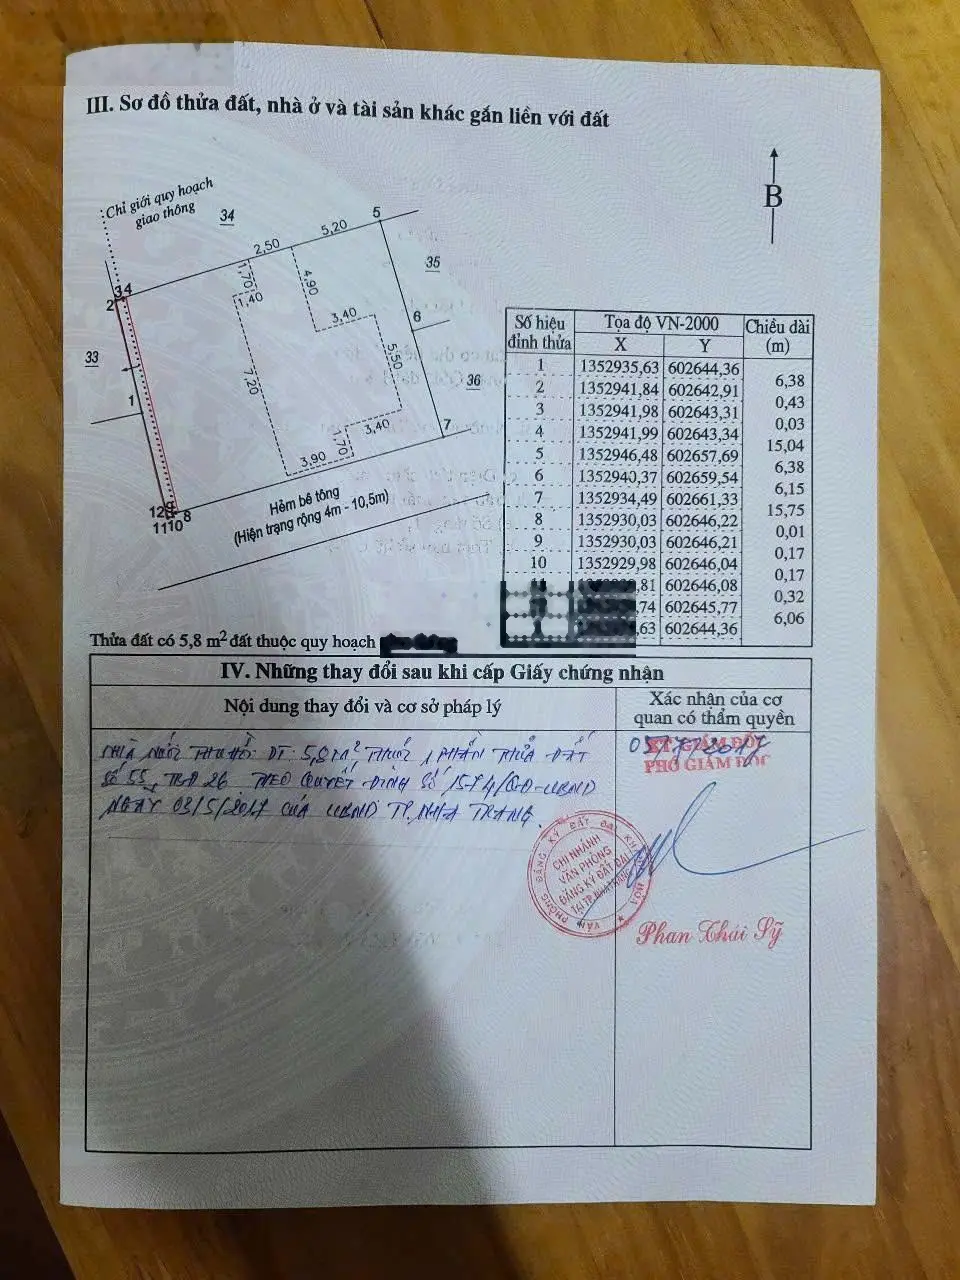 III. Sơ đồ thửa đất, nhà ở và tài sản khác gắn liền với đất
Chỉ giới quy hoạch
giao thông
34
B
2,50
5,20
5
35
1,70
1,40
4,90
3,40
6
2
3
4
33
7,20
5,50
36
1
3,40
7
1,70
3,90
12
9
8
11
10
Hẻm bê tông
(Hiện trạng rộng 4m - 10,5m)
Số hiệu đỉnh thửa Tọa độ VN-2000 Chiều dài (m)
X Y
1 1352935,63 602644,36
6,38
2 1352941,84 602642,91
0,43
3 1352941,98 602643,31
0,03
4 1352941,99 602643,34
15,04
5 1352946,48 602657,69
6,38
6 1352940,37 602659,54
6,15
7 1352934,49 602661,33
15,75
8 1352930,03 602646,22
0,01
9 1352930,03 602646,21
0,17
10 1352929,98 602646,04
0,17
,81 602646,08
0,32
,74 602645,77
6,06
1 ,63 602644,36
Thửa đất có 5,8 m2 đất thuộc quy hoạch
IV. Những thay đổi sau khi cấp Giấy chứng nhận
Nội dung thay đổi và cơ sở pháp lý
Xác nhận của cơ quan có thẩm quyền
NHÀ NƯỚC THU HỒI DT 5,8 M², THUỘC 1 PHẦN THỬA ĐẤT
SỐ 55, TBĐ 26 THEO QUYẾT ĐỊNH SỐ 1574/QĐ-UBND
NGÀY 03/5/2017 CỦA UBND TP. NHA TRANG
KT. GIÁM ĐỐC
PHÓ GIÁM ĐỐC
VĂN PHÒNG ĐĂNG KÝ ĐẤT ĐAI
CHI NHÁNH
VĂN PHÒNG
ĐĂNG KÝ ĐẤT ĐAI
TẠI TP. NHA TRANG
Phan Thái Sỹ